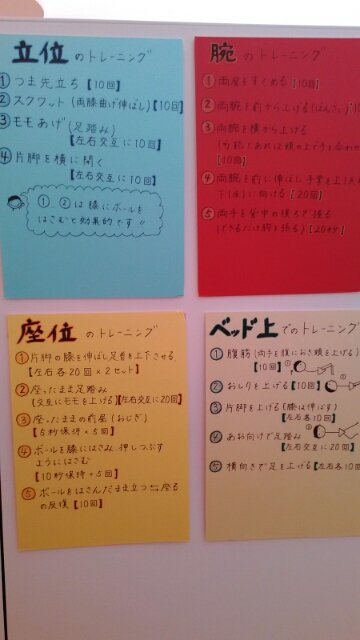 立位のトレーニング
①つま先立ち【10回】
②スクワット(両膝曲げ伸ばし)【10回】
③モモあげ(足踏み)
【左右交互に10回】
④片脚を横に開く
【左右交互に10回】
①、②は膝にボールを
はさむと効果的です!!
腕のトレーニング
①両肩をすくめる【10回】
②両腕を前から上げる(ばんざい)
③両腕を横から上げる
【10回】
④両腕を前に伸ばし手掌を上(天
下(床)に向ける【20回】
⑤両手を背中の後ろで握る
(できるだけ胸を張る)【20秒】
座位のトレーニング
①片脚の膝を伸ばし足首を上下させる
【左右各20回×2セット】
②座ったまま足踏み
(交互にモモを上げる)【左右交互に20回】
③座ったままの前屈(おじぎ)
【5秒保持×5回】
④ボールを膝にはさみ、押しつぶす
ようにはさむ
【10秒保持×5回】
⑤ボールをはさんだまま立つ⇆座る
の反復【10回】
ベッド上でのトレーニング
①腹筋(両手を腹におき頭を上げる)
【10回】
②おしりを上げる【10回】
③片脚を上げる(膝は伸ばす)
【左右各10回】
④あお向けで足踏み
【左右交互に20回】
⑤横向きで足を上げる【左右各10